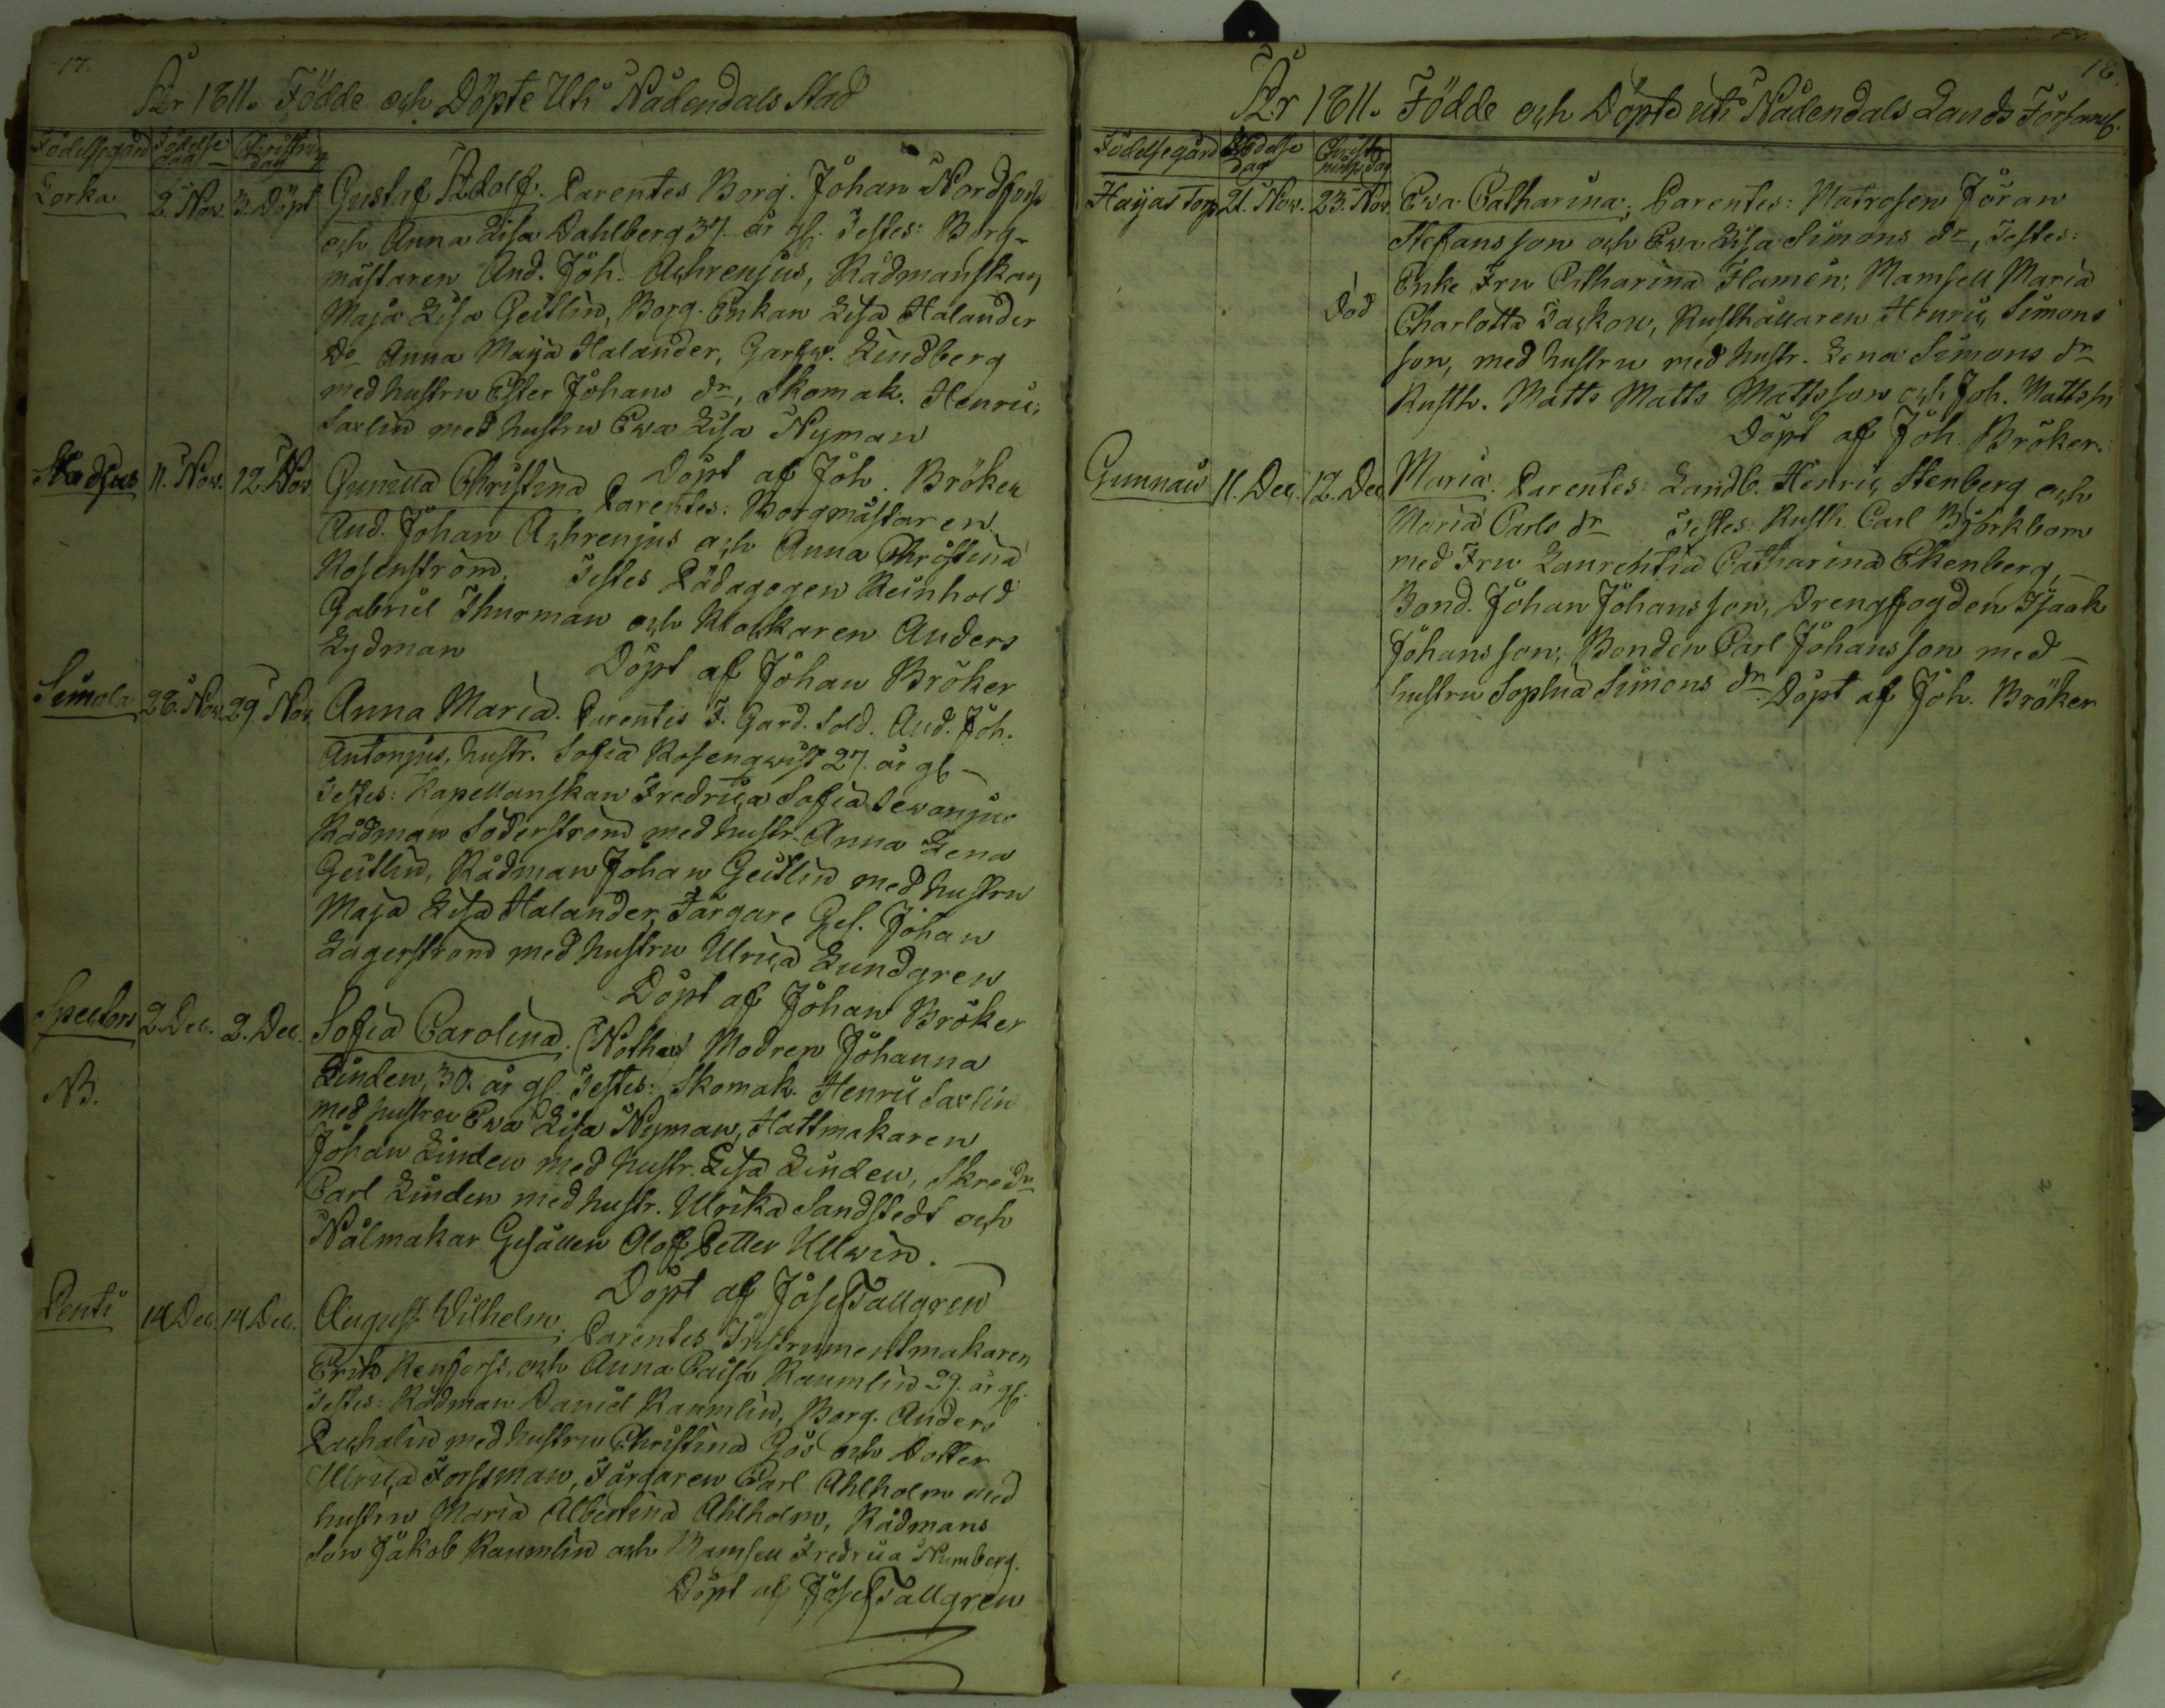 17.
År 1811. Födde och Döpte Uti Nådendals Stad
Födelsegård Födelse dag Christnings dag
Lorka 2. Nov. 3. Döpt Gustaf Adolf. Parentes Borg. Johan Nordfors
och Anna Lisa Dahlberg 37. år gl. Testes: Borg-
mästaren And. Joh. Achrenius, Rådmanskan
Maja Lisa Geitlin, Borg. Enkan Lisa Halander
Do Anna Maija Halander, Garfw. Lindberg
med hustru Ester Johans dr, Skomak. Henric
Saxlin med hustru Ewa Lisa Nyman
Döpt af Joh. Bröker
11. Nov. 12. Nov Gunilla Christina Parentes: Borgmästaren
And. Johan Achrenius och Anna Christina
Rosenström. Testes Pädagogen Reinhold
Gabriel Thurman och Klockaren Anders
Lydman
Döpt af Johan Bröker
Simola 28. Nov. 29. Nov. Anna Maria. Parentes F. Gard. Sold. And. Joh.
Antonius, hustr. Sofia Rosenqwist 27. år gl
Testes: Kapellanskan Fredrica Sofia
Rådman Söderström med hustr. Anna Lena
Geitlin, Rådman Johan Geitlin med hustru
Maja Lisa Halander, Färgare Ges. Johan
Lagerström med hustru Ulrica Lundgren
Döpt af Johan Bröker
Spectors 2. Dec. 2. Dec. Sofia Carolina. (Notha) Modren Johanna
NB. Linden, 30. år gl. Testes: Skomak. Henric Saxlin
med hustru Ewa Lisa Nyman, Hattmakaren
Johan Linden med hustr. Lisa Linden, Skredr
Carl Linden med hustr. Ulrika Sandstedt och
Nålmakar Gesällen Olof Petter Ullwin.
Döpt af Josef Tallgren
Penti 14 Dec. 14 Dec. August Wilhelm. Parentes Instrumentmakaren
Erik Renfors, och Anna Caisa Raumlin 29. år gl.
Testes: Rådman Daniel Raumlin, Borg. Anders
Pachalin med hustru Christina Gös och Dotter
Ulrica Forssman, Färgaren Carl Ahlholm med
hustru Maria Albertina Ahlholm, Rådmans
Son Jakob Raumlin och Mamsell Fredrica Numberg.
Döpt af Josef Tallgren
18.
År 1811. Födde och Döpte uti Nådendals Lands Församl.
Födelsegård Födelse Dag Christnings Dag
Haijas Torp 21. Nov. 23. Nov. Ewa Catharina. Parentes: Matrosen Jöran
Stefansson och Ewa Lisa Simons dr, Testes:
Enke Fru Catharina Flamén; Mamsell Maria
Död Charlotta Packou, Rusthållaren Henric Simons
son, med hustru med hustr. Lena Simons dr
Rusth. Matts Matts Mattsson och Joh. Mattss
Döpt af Joh. Bröker.
11. Dec. 12. Dec Maria. Parentes: Landb. Henric Stenberg och
Maria Carls dr Testes: Rusth. Carl Björkbom
med Fru Laurentia Catharina Ekenberg,
Bond. Johan Johansson, Drengfogden Isaak
Johansson, Bonden Carl Johansson med
hustru Sophia Simons dr. Döpt af Joh. Bröker